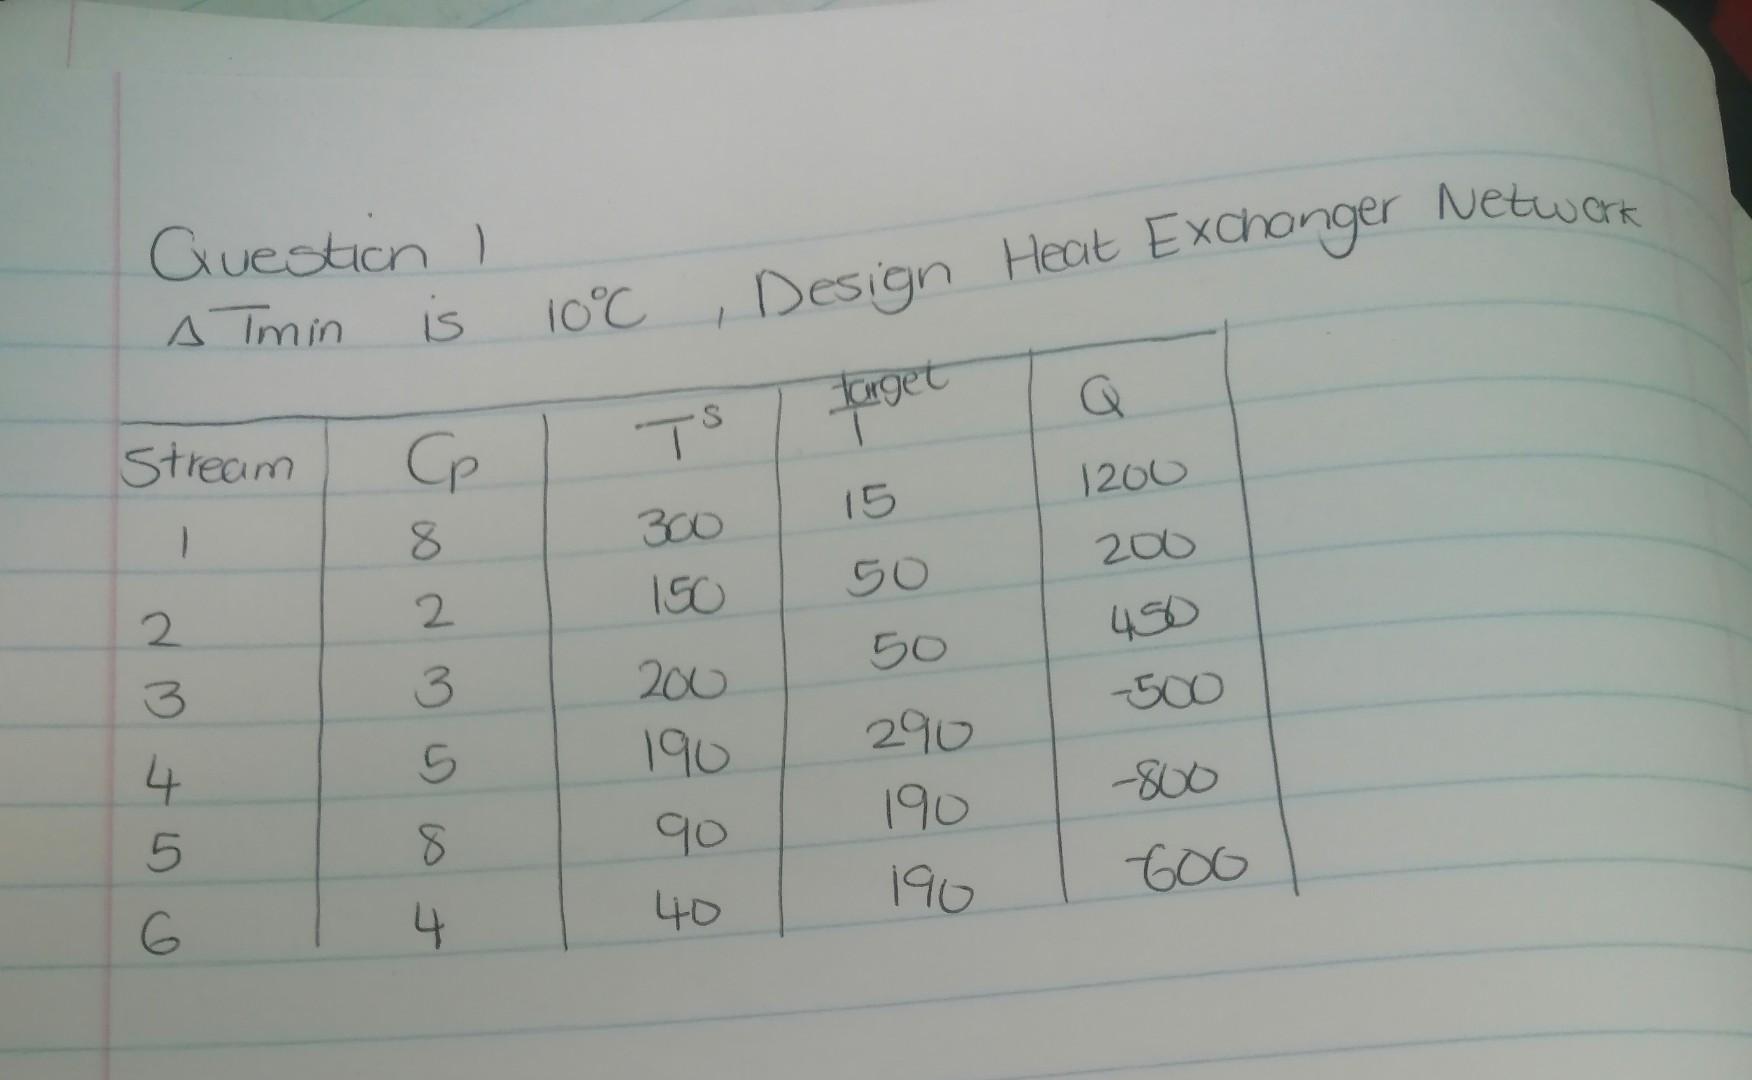 Question 1
ΔTmin is 10°C, Design Heat Exchanger Network
Stream Cp T^S Target T Q
1 8 300 15 1200
2 2 150 50 200
3 3 200 50 450
4 5 190 290 -500
5 8 90 190 -800
6 4 40 190 -600